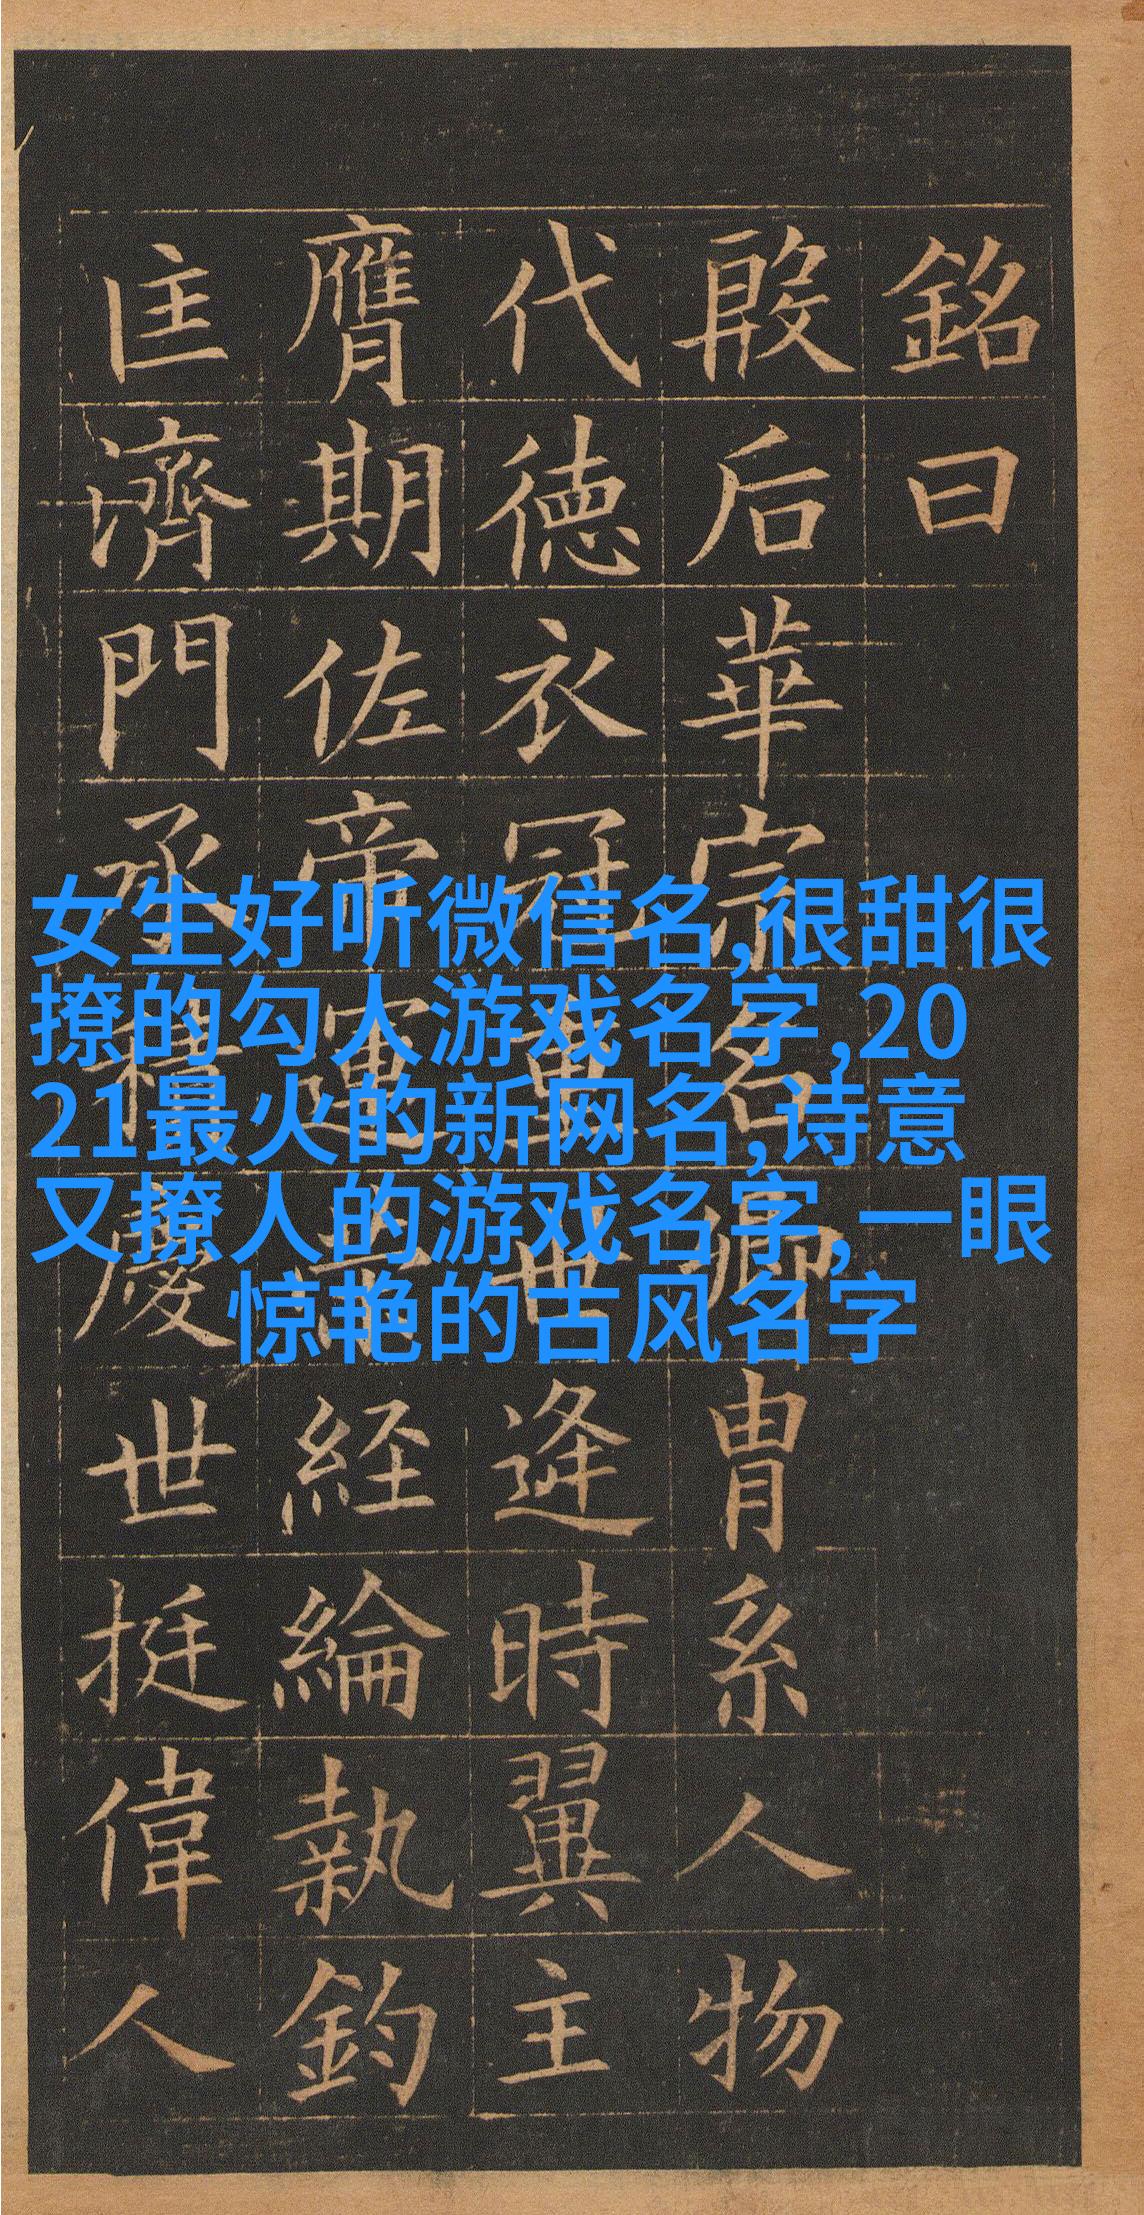 銘曰
殷后華宗名卿冑系人物
代德衣冠重世逢時翼主
膺期佐帝運經綸執鈞
匡濟門承積慶世挺偉人
女生好听微信名,很甜很
撩的勾人游戏名字,20
21最火的新网名,诗意
又撩人的游戏名字,一眼
惊艳的古风名字